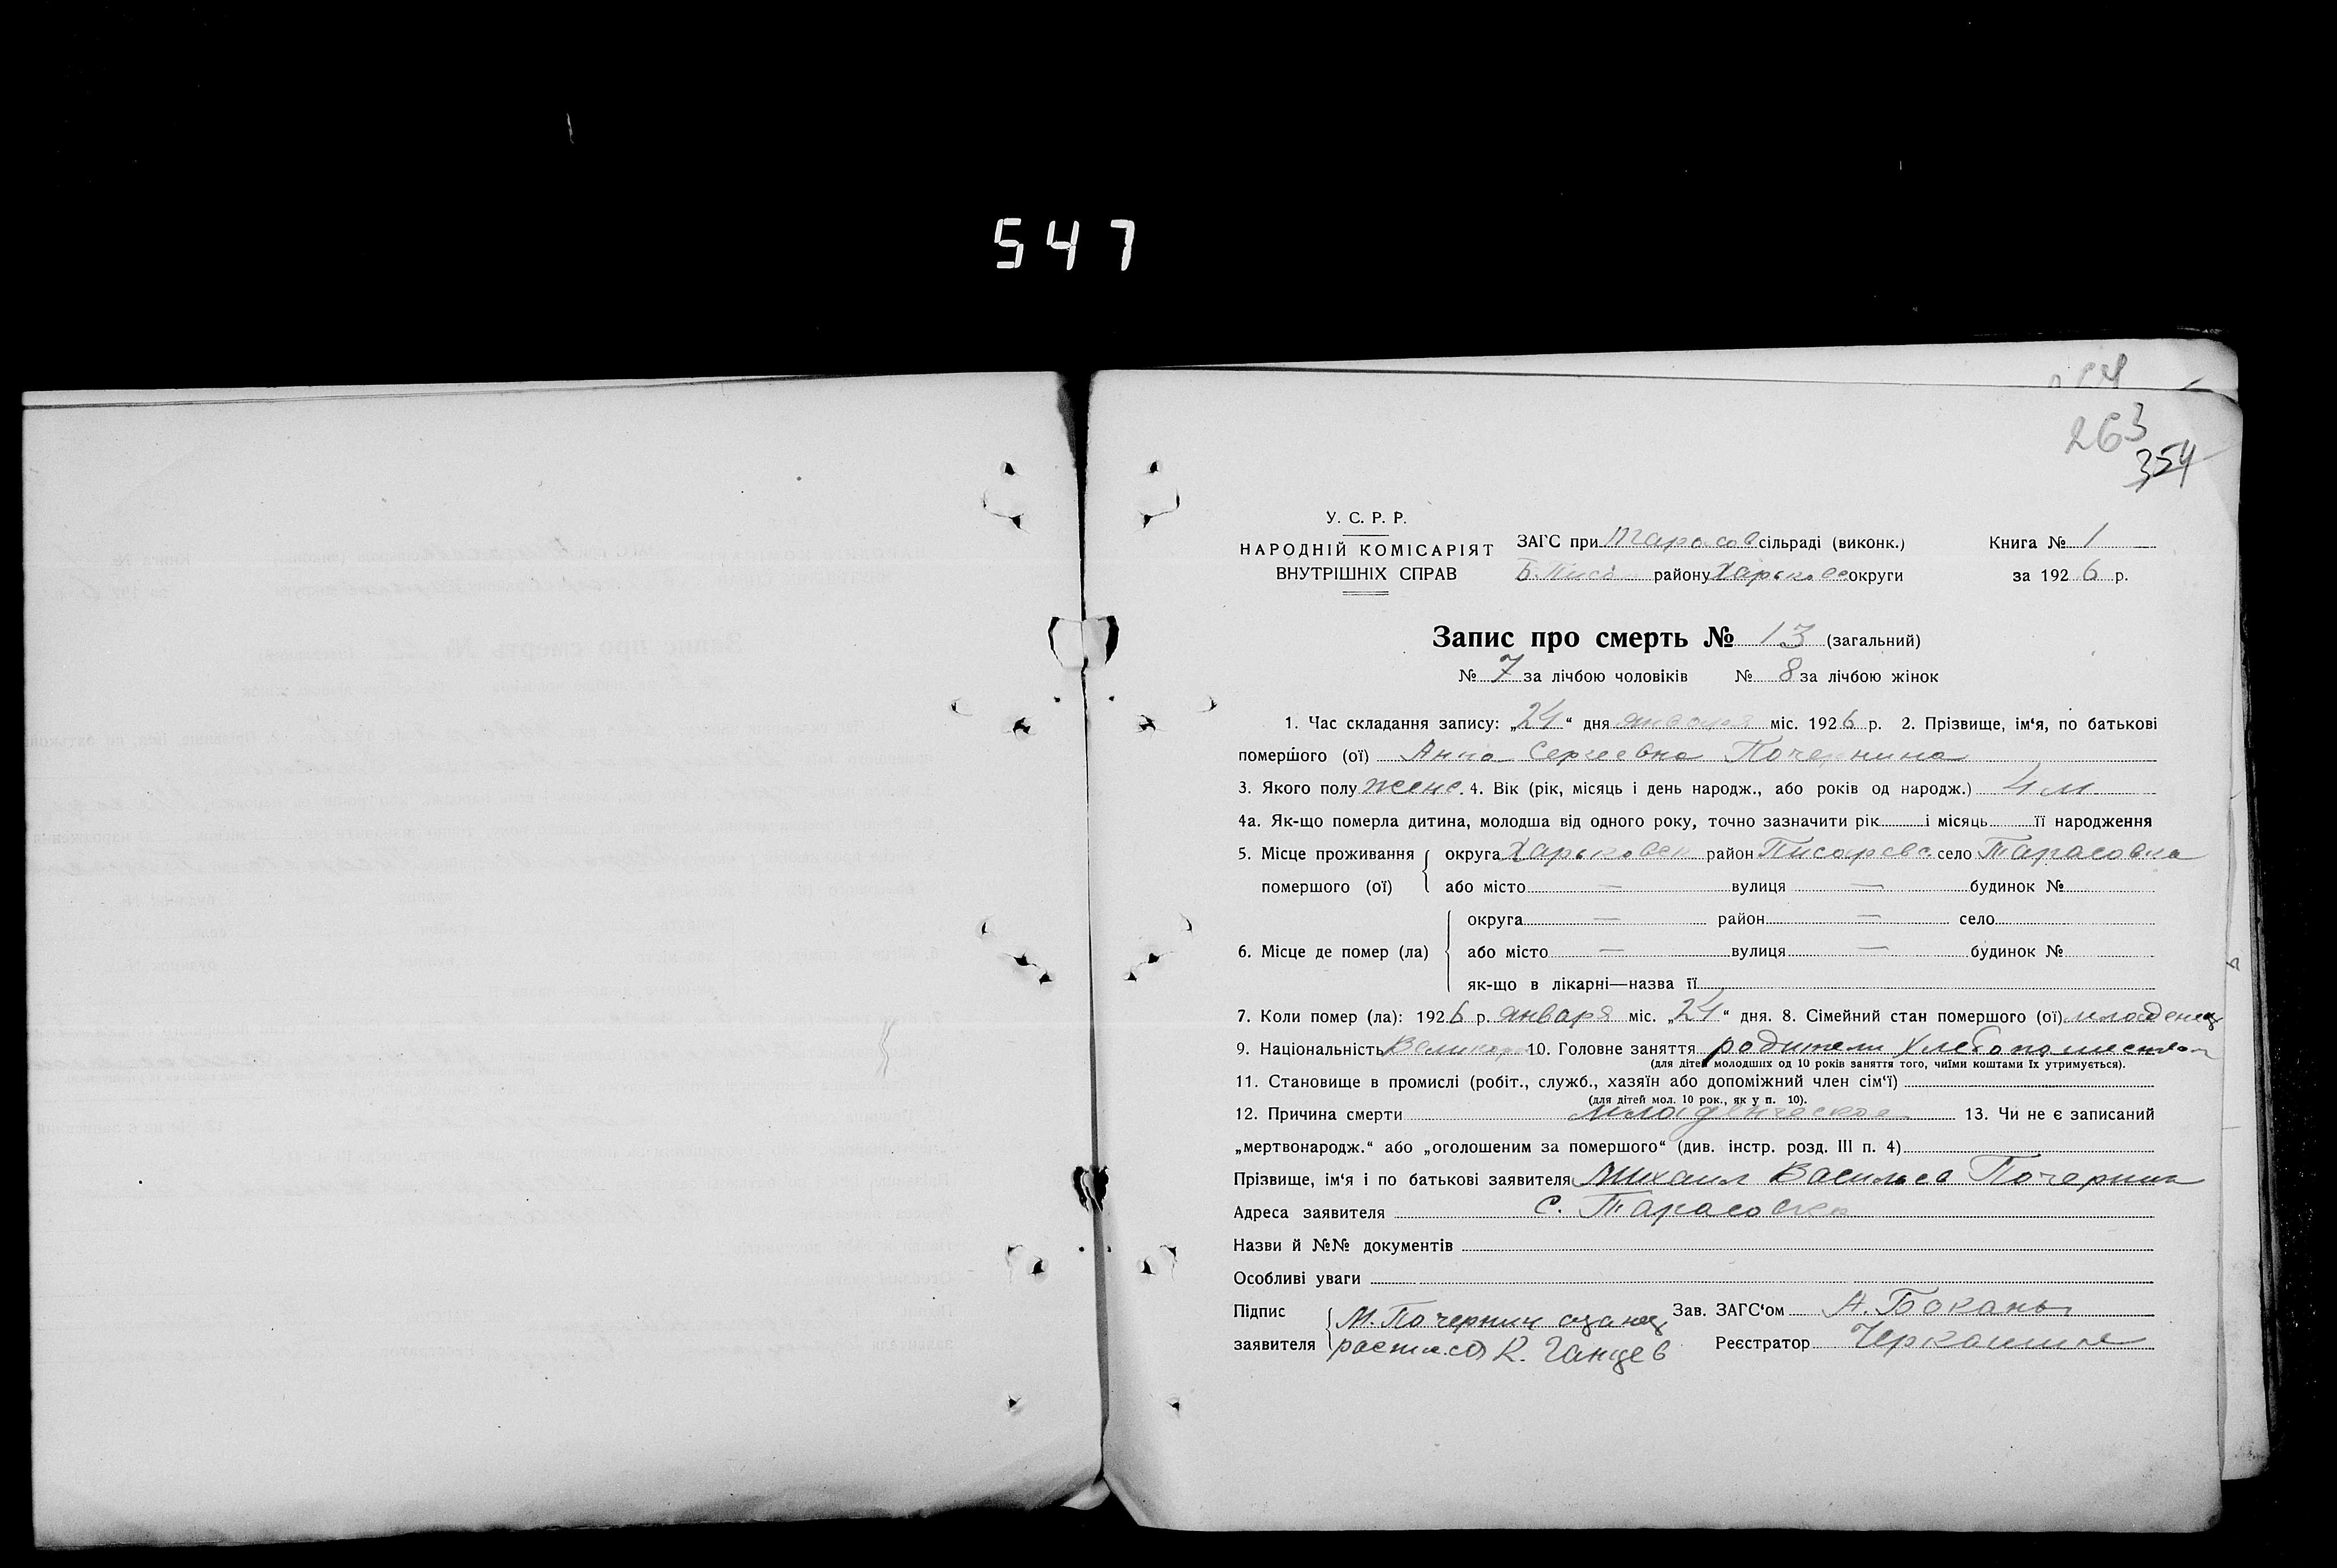 547
263
354
У. С. Р. Р.
НАРОДНІЙ КОМІСАРІЯТ
ВНУТРІШНІХ СПРАВ
ЗАГС при Тарасов сільраді (виконк.)
Б. Писа району Харьков округи
Книга № 1
за 1926 р.
Запис про смерть № 13 (загальний)
№ 7 за лічбою чоловіків № 8 за лічбою жінок
1. Час складання запису: „24“ дня января міс. 1926 р. 2. Прізвище, ім‘я, по батькові
помершого (ої) Анна Сергеевна Почернина
3. Якого полу женс. 4. Вік (рік, місяць і день народж., або років од народж.) 4 м.
4а. Як-що померла дитина, молодша від одного року, точно зазначити рік і місяць її народження
5. Місце проживання помершого (ої)
округа Харьковск район Писаревс. село Тарасовка
або місто — вулиця — будинок №
6. Місце де помер (ла)
округа — район — село
або місто — вулиця — будинок №
як-що в лікарні—назва її
7. Коли помер (ла): 1926 р. января міс. „24“ дня. 8. Сімейний стан помершого (ої) младенец
9. Національність Великор 10. Головне заняття родители хлебопашеством
(для дітей молодших од 10 років заняття того, чиїми коштами їх утримується).
11. Становище в промислі (робіт., служб., хазяїн або допоміжний член сім‘ї)
(для дітей мол. 10 рок., як у п. 10).
12. Причина смерти младенческое 13. Чи не є записаний
„мертвонародж.“ або „оголошеним за помершого“ (див. інстр. розд. III п. 4)
Прізвище, ім‘я і по батькові заявителя Михаил Васильев Почернин
Адреса заявителя с. Тарасовка
Назви й №№ документів
Особливі уваги
Підпис заявителя
М. Почернин
К. Ганцев
Зав. ЗАГС‘ом А. Бокань
Реєстратор Черкашин